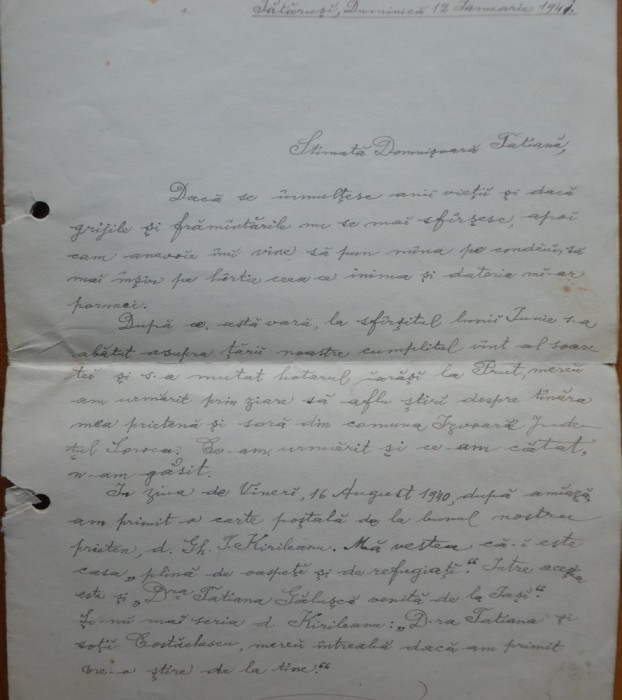 Tătăruși, Duminică 12 Ianuarie 1941.
Stimată Domnișoară Tatiană,
Dacă se înmulțesc anii vieții și dacă
grijile și frămîntările nu se mai sfîrșesc, apoi
cam anevoie îmi vine să pun mîna pe condeiu, să
mai înșir pe hîrtie ceea ce inima și datoria mi-ar
porunci.
După ce, astă vară, la sfîrșitul lunii Iunie s-a
abătut asupra țării noastre cumplitul vînt al soar-
tei și s-a mutat hotarul iarăși la Prut, mereu
am urmărit prin ziare să aflu știri despre tînăra
mea prietenă și soră din comuna Izvoară Jude-
țul Soroca. Ce am urmărit și ce am cătat,
n-am găsit.
In ziua de Vineri, 16 August 1940, după amiază,
am primit o carte poștală de la bunul nostru
prieten, d. Gh. T. Kirileanu. Mă vestea că-i este
casa „plină de oaspeți și de refugiați." Intre aceștia
este și „D-ra Tatiana Gălușcă venită de la Iași".
Și-mi mai scria d. Kirileanu: „D-ra Tatiana și
soții Costăchescu, mereu întreabă dacă am primit
vre-o știre de la tine."